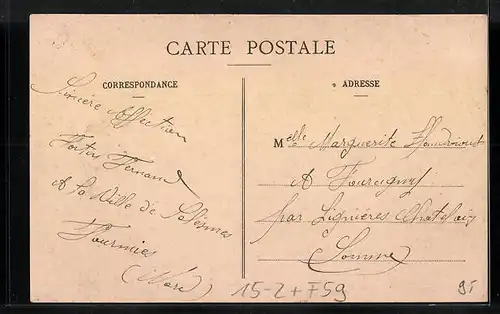 CARTE POSTALE
CORRESPONDANCE
Sincère Affection
Fortin Fernand
A la Ville de Solesmes
Fourmies
(Nord)
ADRESSE
Melle Marguerite
A Fourcigny
par Lignières Chatelain
Somme
15-2+F59
95